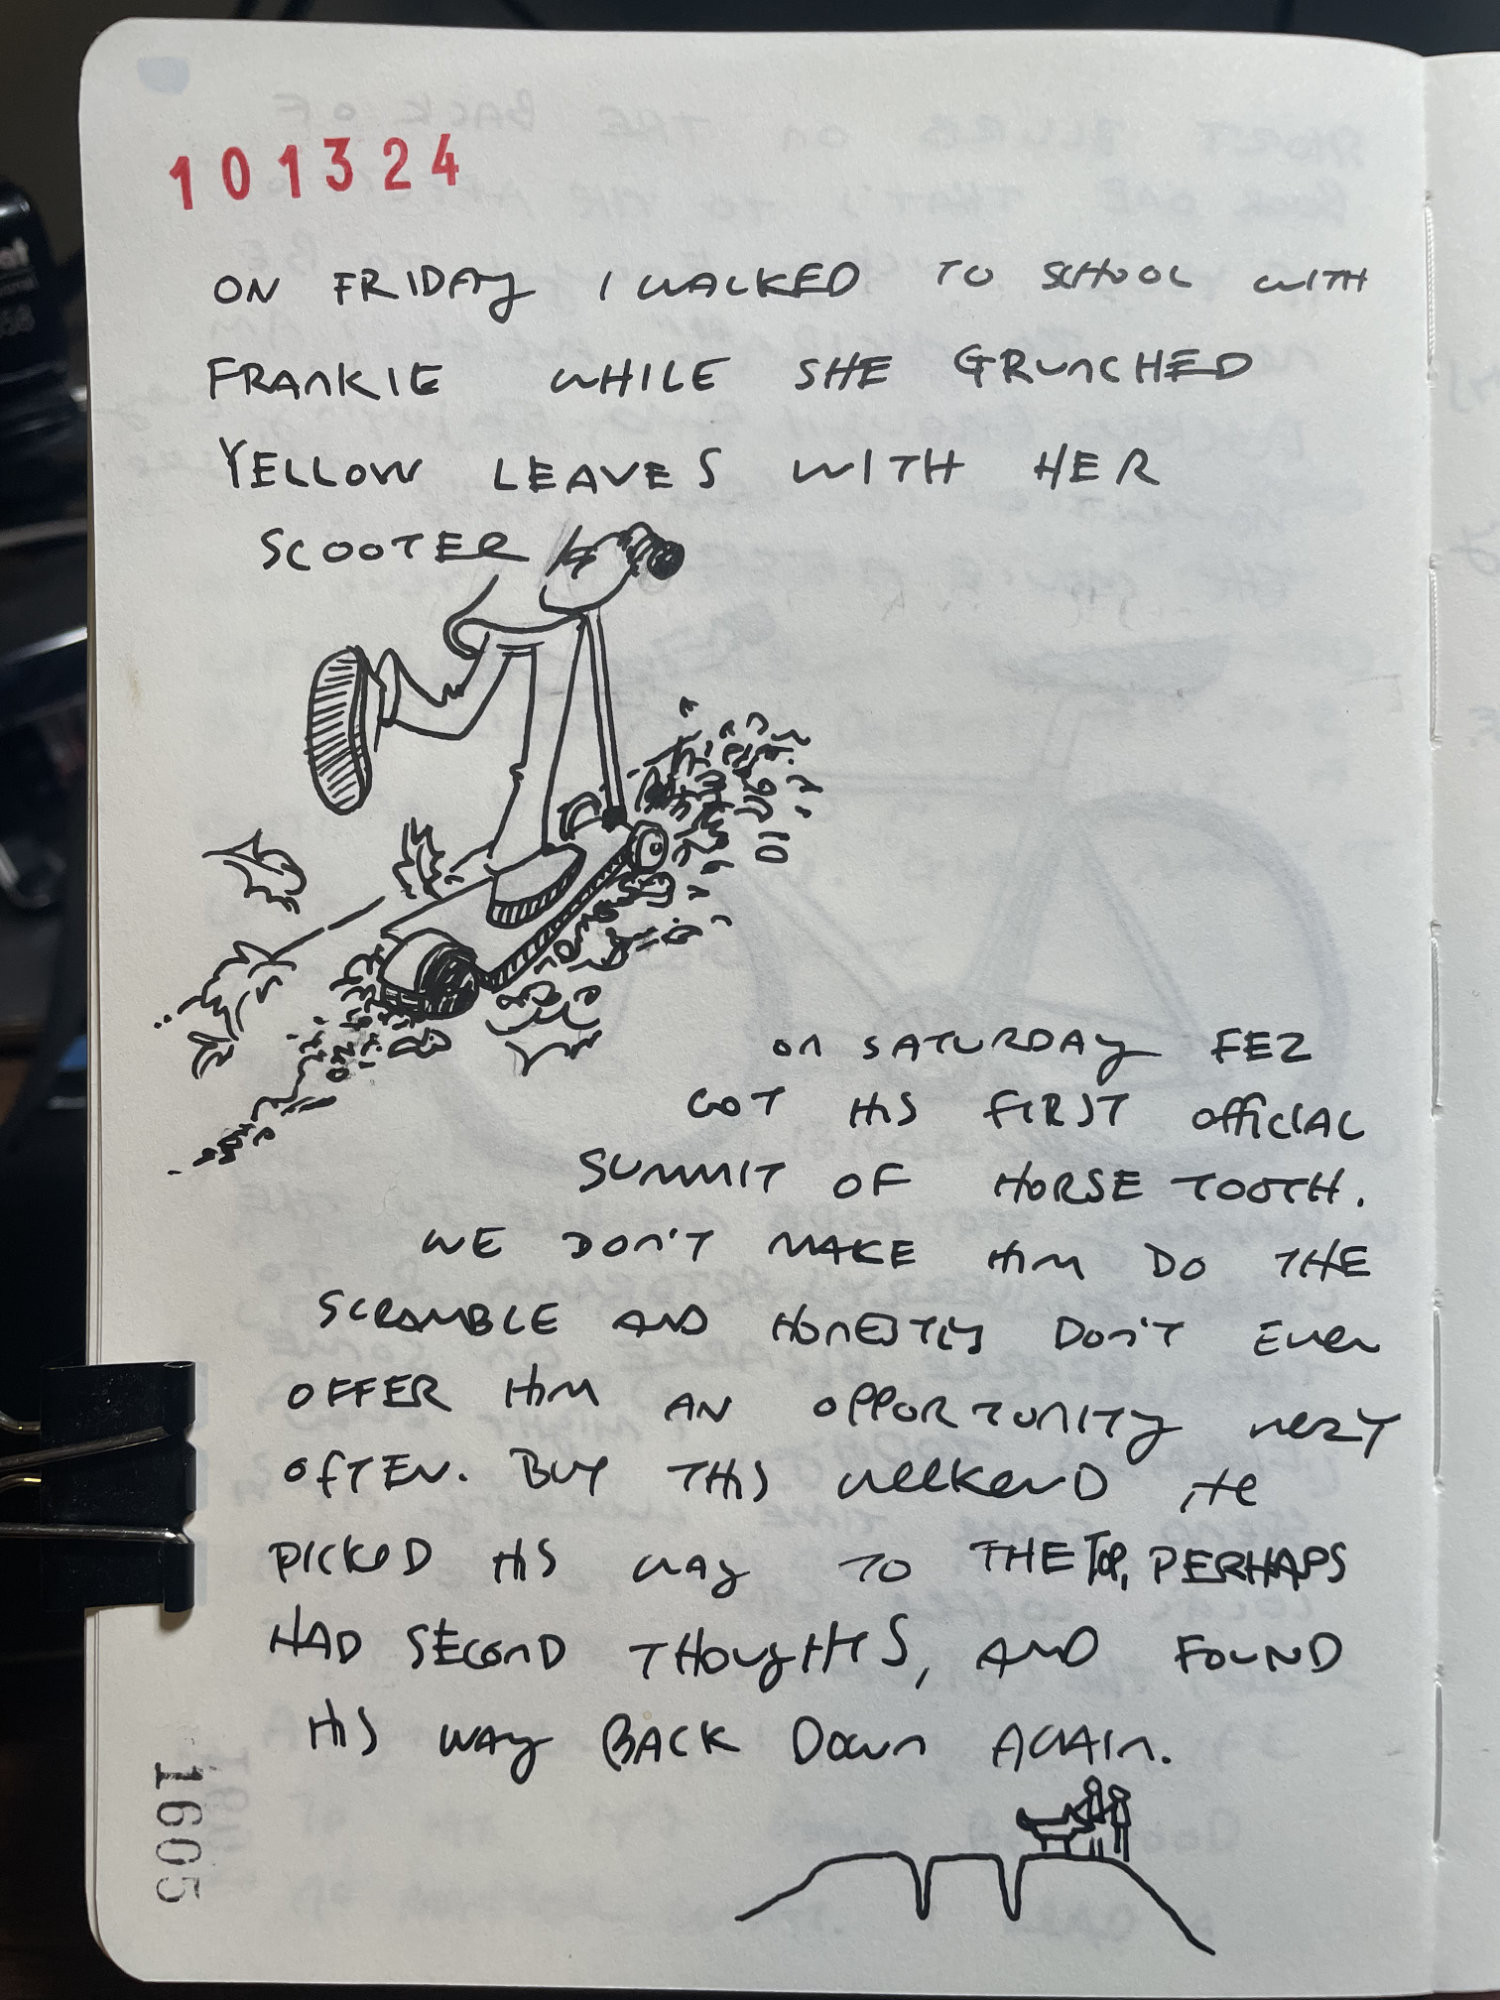 101324
ON FRIDAY I WALKED TO SCHOOL WITH
FRANKIE WHILE SHE GRUNCHED
YELLOW LEAVES WITH HER
SCOOTER
ON SATURDAY FEZ
GOT HIS FIRST OFFICIAL
SUMMIT OF HORSE TOOTH.
WE DON'T MAKE HIM DO THE
SCRAMBLE AND HONESTLY DON'T EVEN
OFFER HIM AN OPPORTUNITY VERY
OFTEN. BUT THIS WEEKEND HE
PICKED HIS WAY TO THE TOP, PERHAPS
HAD SECOND THOUGHTS, AND FOUND
HIS WAY BACK DOWN AGAIN.
1605